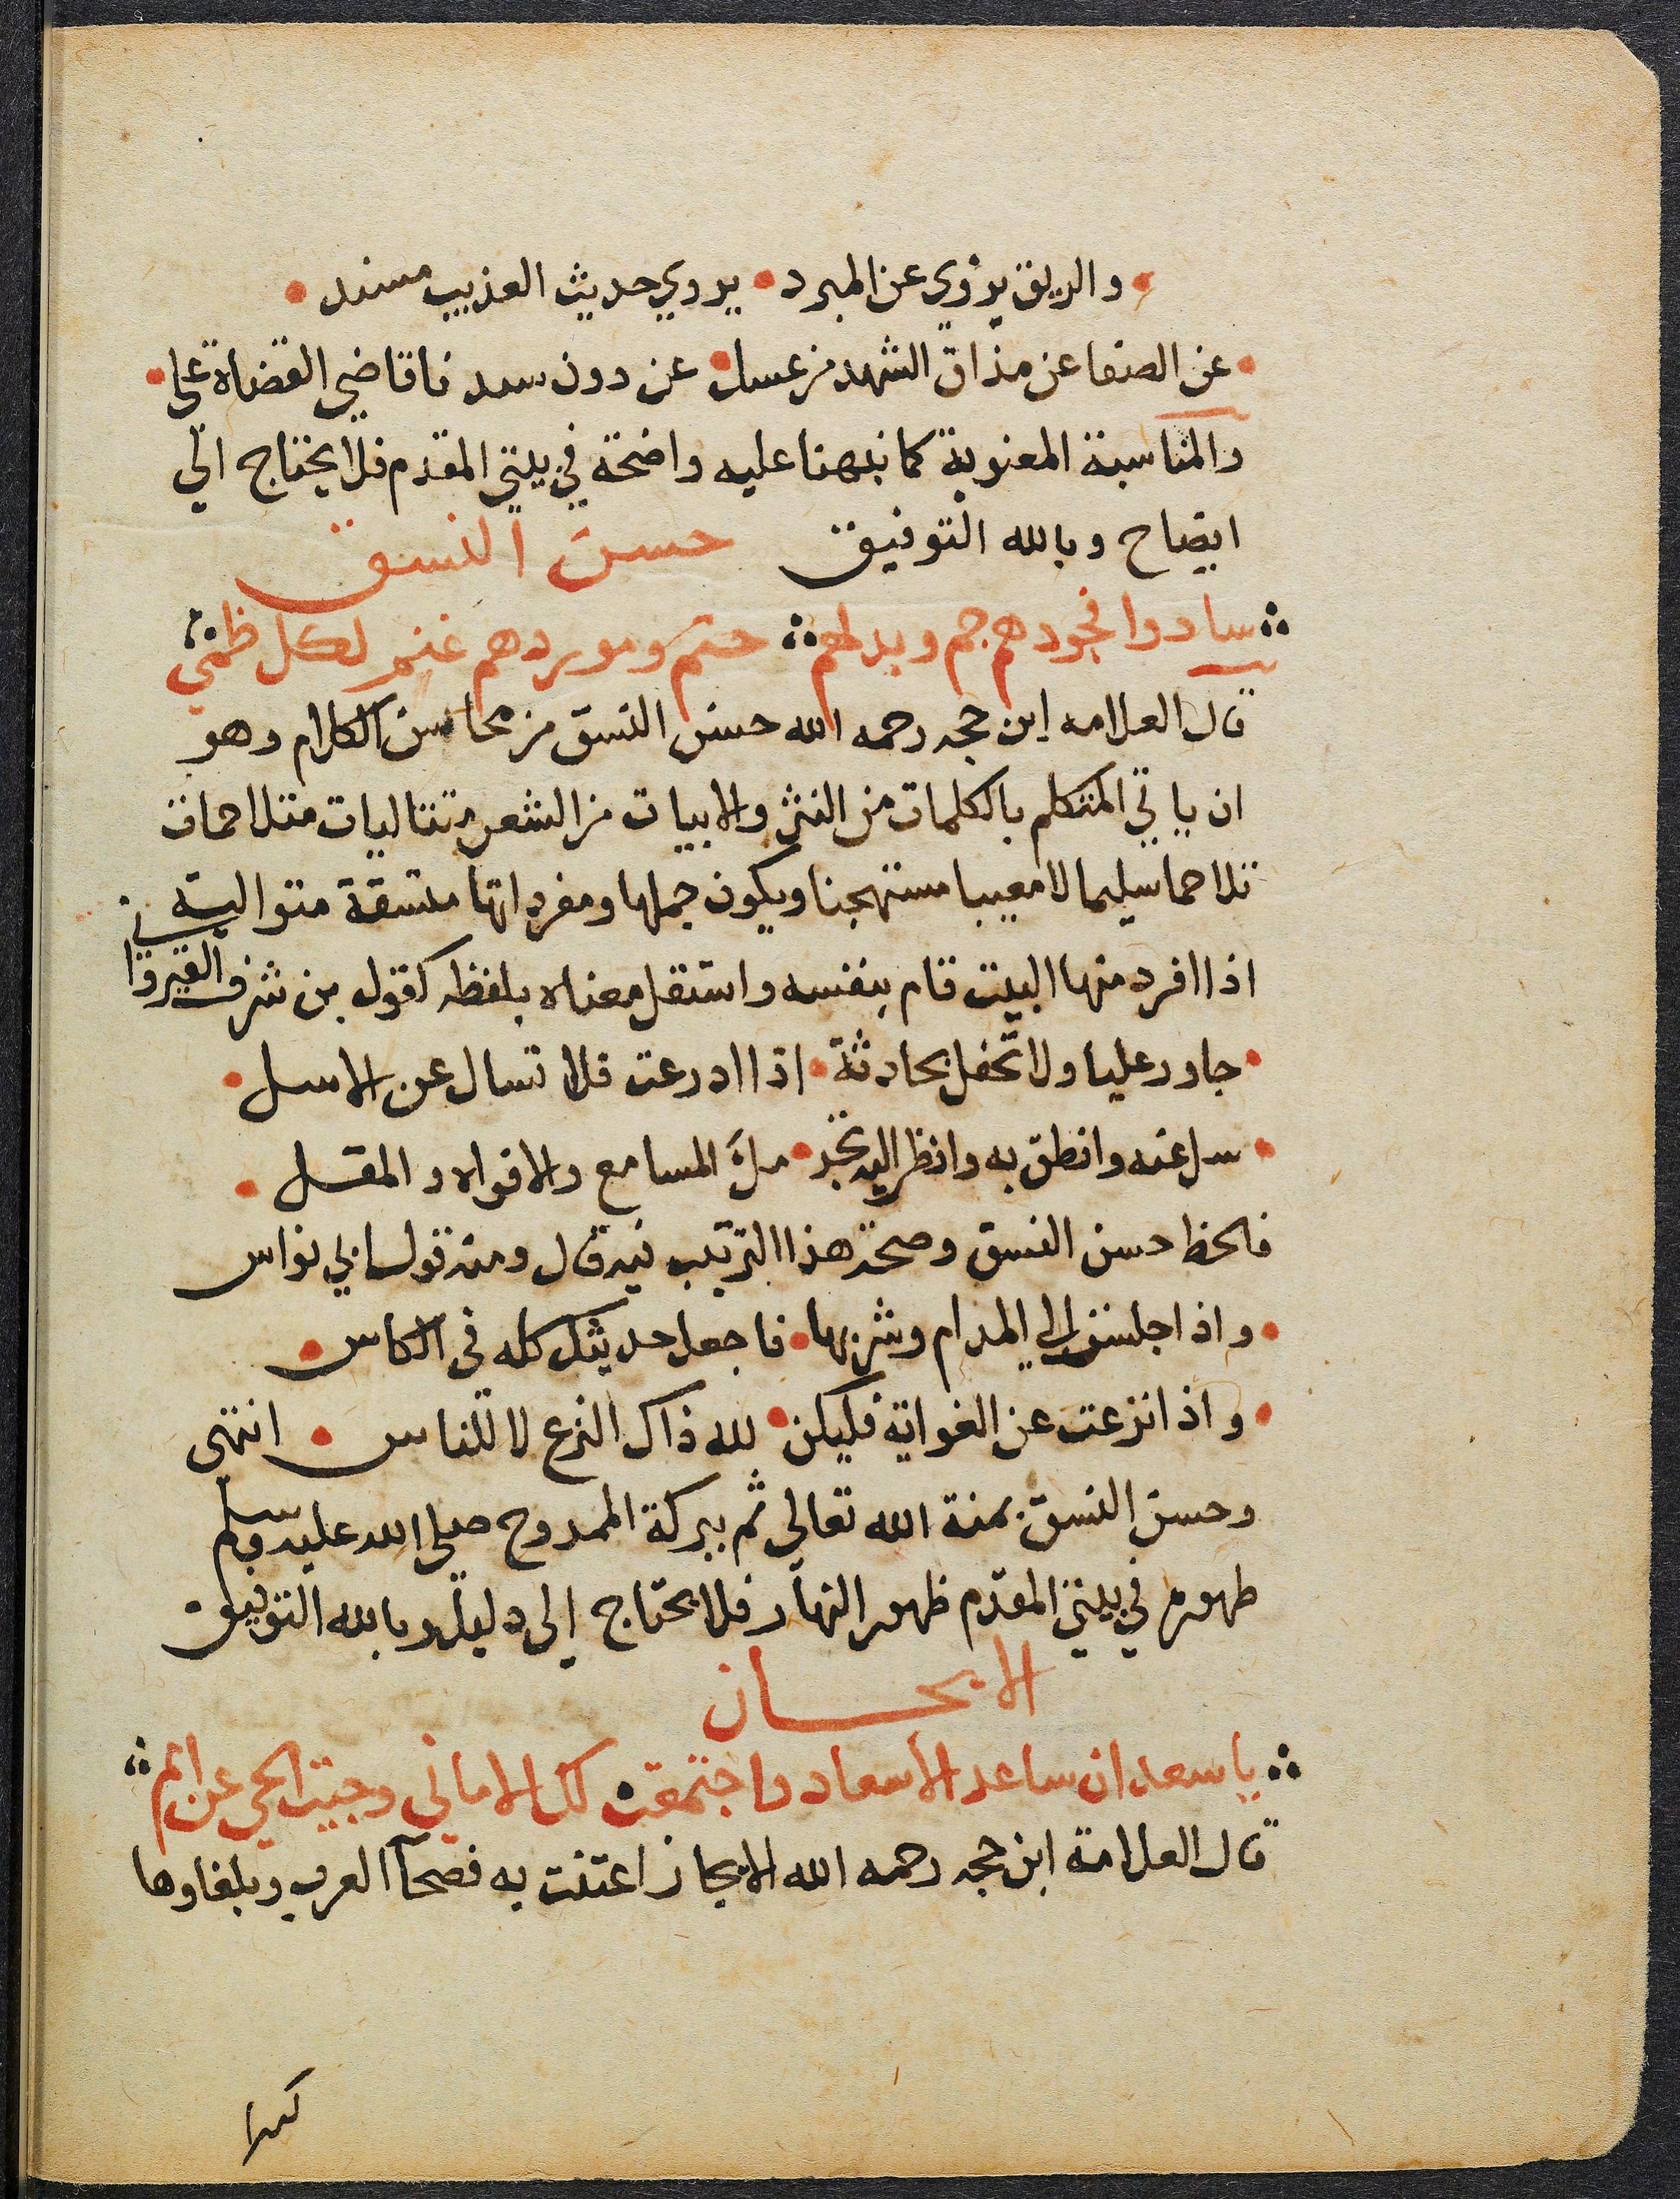 والريق يروي عن المبرد • يروي حديث العذيب مسند •
• عن الصفا عن مذاق الشهد من عسل • عن دون سيدنا قاضي القضاة علي •
والمناسبة المعنوية كما نبهنا عليه واضحة في بيتي المقدم فلا يحتاج الي
ايضاح وبالله التوفيق حسن النسق
سادوا فجودهم جم وبذلهم ∴ حتم وموردهم غنم لكل ظمي
قال العلامه ابن حجه رحمه الله حسن النسق من محاسن الكلام وهو
ان ياتي المتكلم بالكلمات من النثر والابيات من الشعر متتاليات متلاحمات
تلاحما سليما لا معيبا مستهجنا ويكون جملها ومفرداتها متسقة متوالية
اذا افرد منها البيت قام بنفسه واستقل معناه بلفظه كقول بن شرف القيرواني
• جاور عليا ولا تحفل بحادثة • اذا ادرعت فلا تسال عن الاسل •
• سل عنه وانطق به وانظر اليه تجد • ملء المسامع والافواه والمقل •
فالحظ حسن النسق وصحة هذا الترتيب فيه قال ومنه قول ابي نواس
• واذا جلست الي المدام وشربها • فاجعل حديثك كله في الكاس •
• واذا نزعت عن الغواية فليكن • لله ذاك النزع لا للناس • انتهى
وحسن النسق بمنة الله تعالي ثم ببركة الممدوح صلى الله عليه وسلم
ظهوره في بيتي المقدم ظهور النهار فلا يحتاج إلى دليل وبالله التوفيق
الايجاز
∴ يا سعد ان ساعد الاسعاد واجتمعت لك الاماني وجيت الحي عن امم ∴
قال العلامة ابن حجه رحمه الله الايجاز اعتنت به فصحآ العرب وبلغاوها